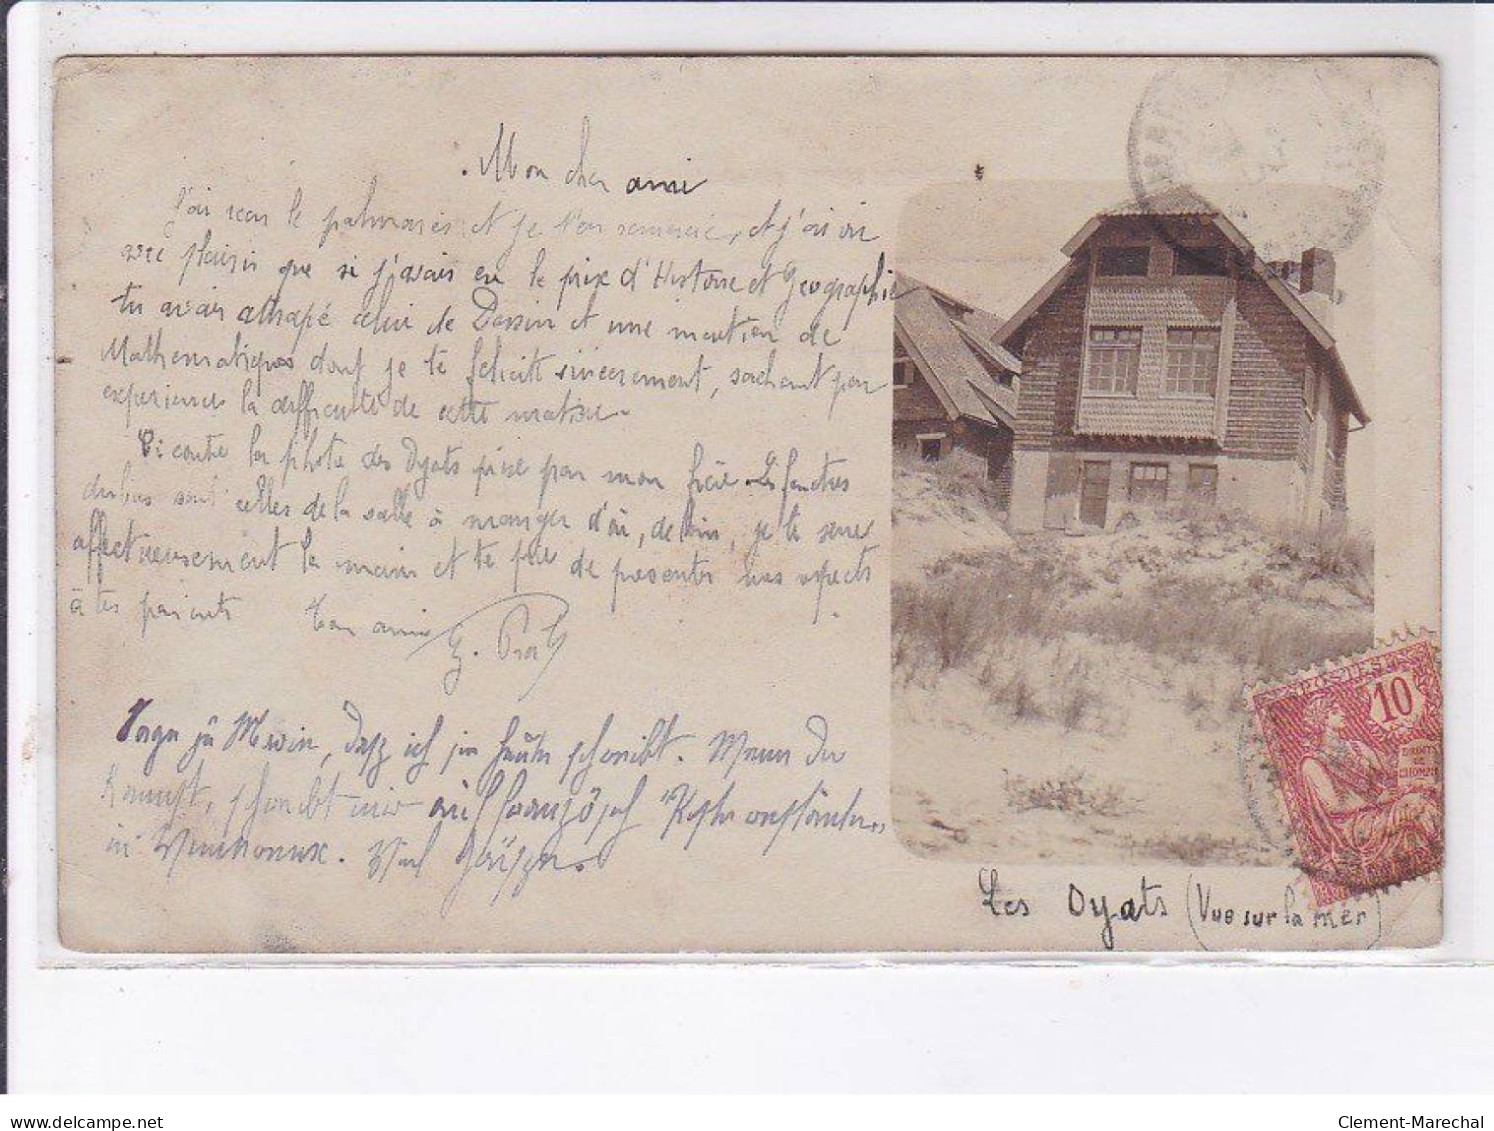 Mon cher ami
J'ai reçu le palmarès et je t'en remercie, et j'ai vu
avec plaisir que si j'avais eu le prix d'Histoire et Géographie
tu avais attrapé celui de Dessin et une mention de
Mathématiques dont je te félicite sincèrement, sachant par
expérience la difficulté de cette matière.
Ci contre la photo des Oyats prise par mon frère. Les fenêtres
du bas sont celles de la salle à manger d'où, de loin, je te serre
affectueusement la main et te prie de présenter mes respects
à tes parents Ton ami
daß ich heute schreibt. Wenn Du
kannst, schreibt mir auf französch
in Viel Grüßen.
Les Oyats (Vue sur la mer)
POSTES
10
DROITS
DE
L'HOMME
delcampe.net
Clement-Marechal